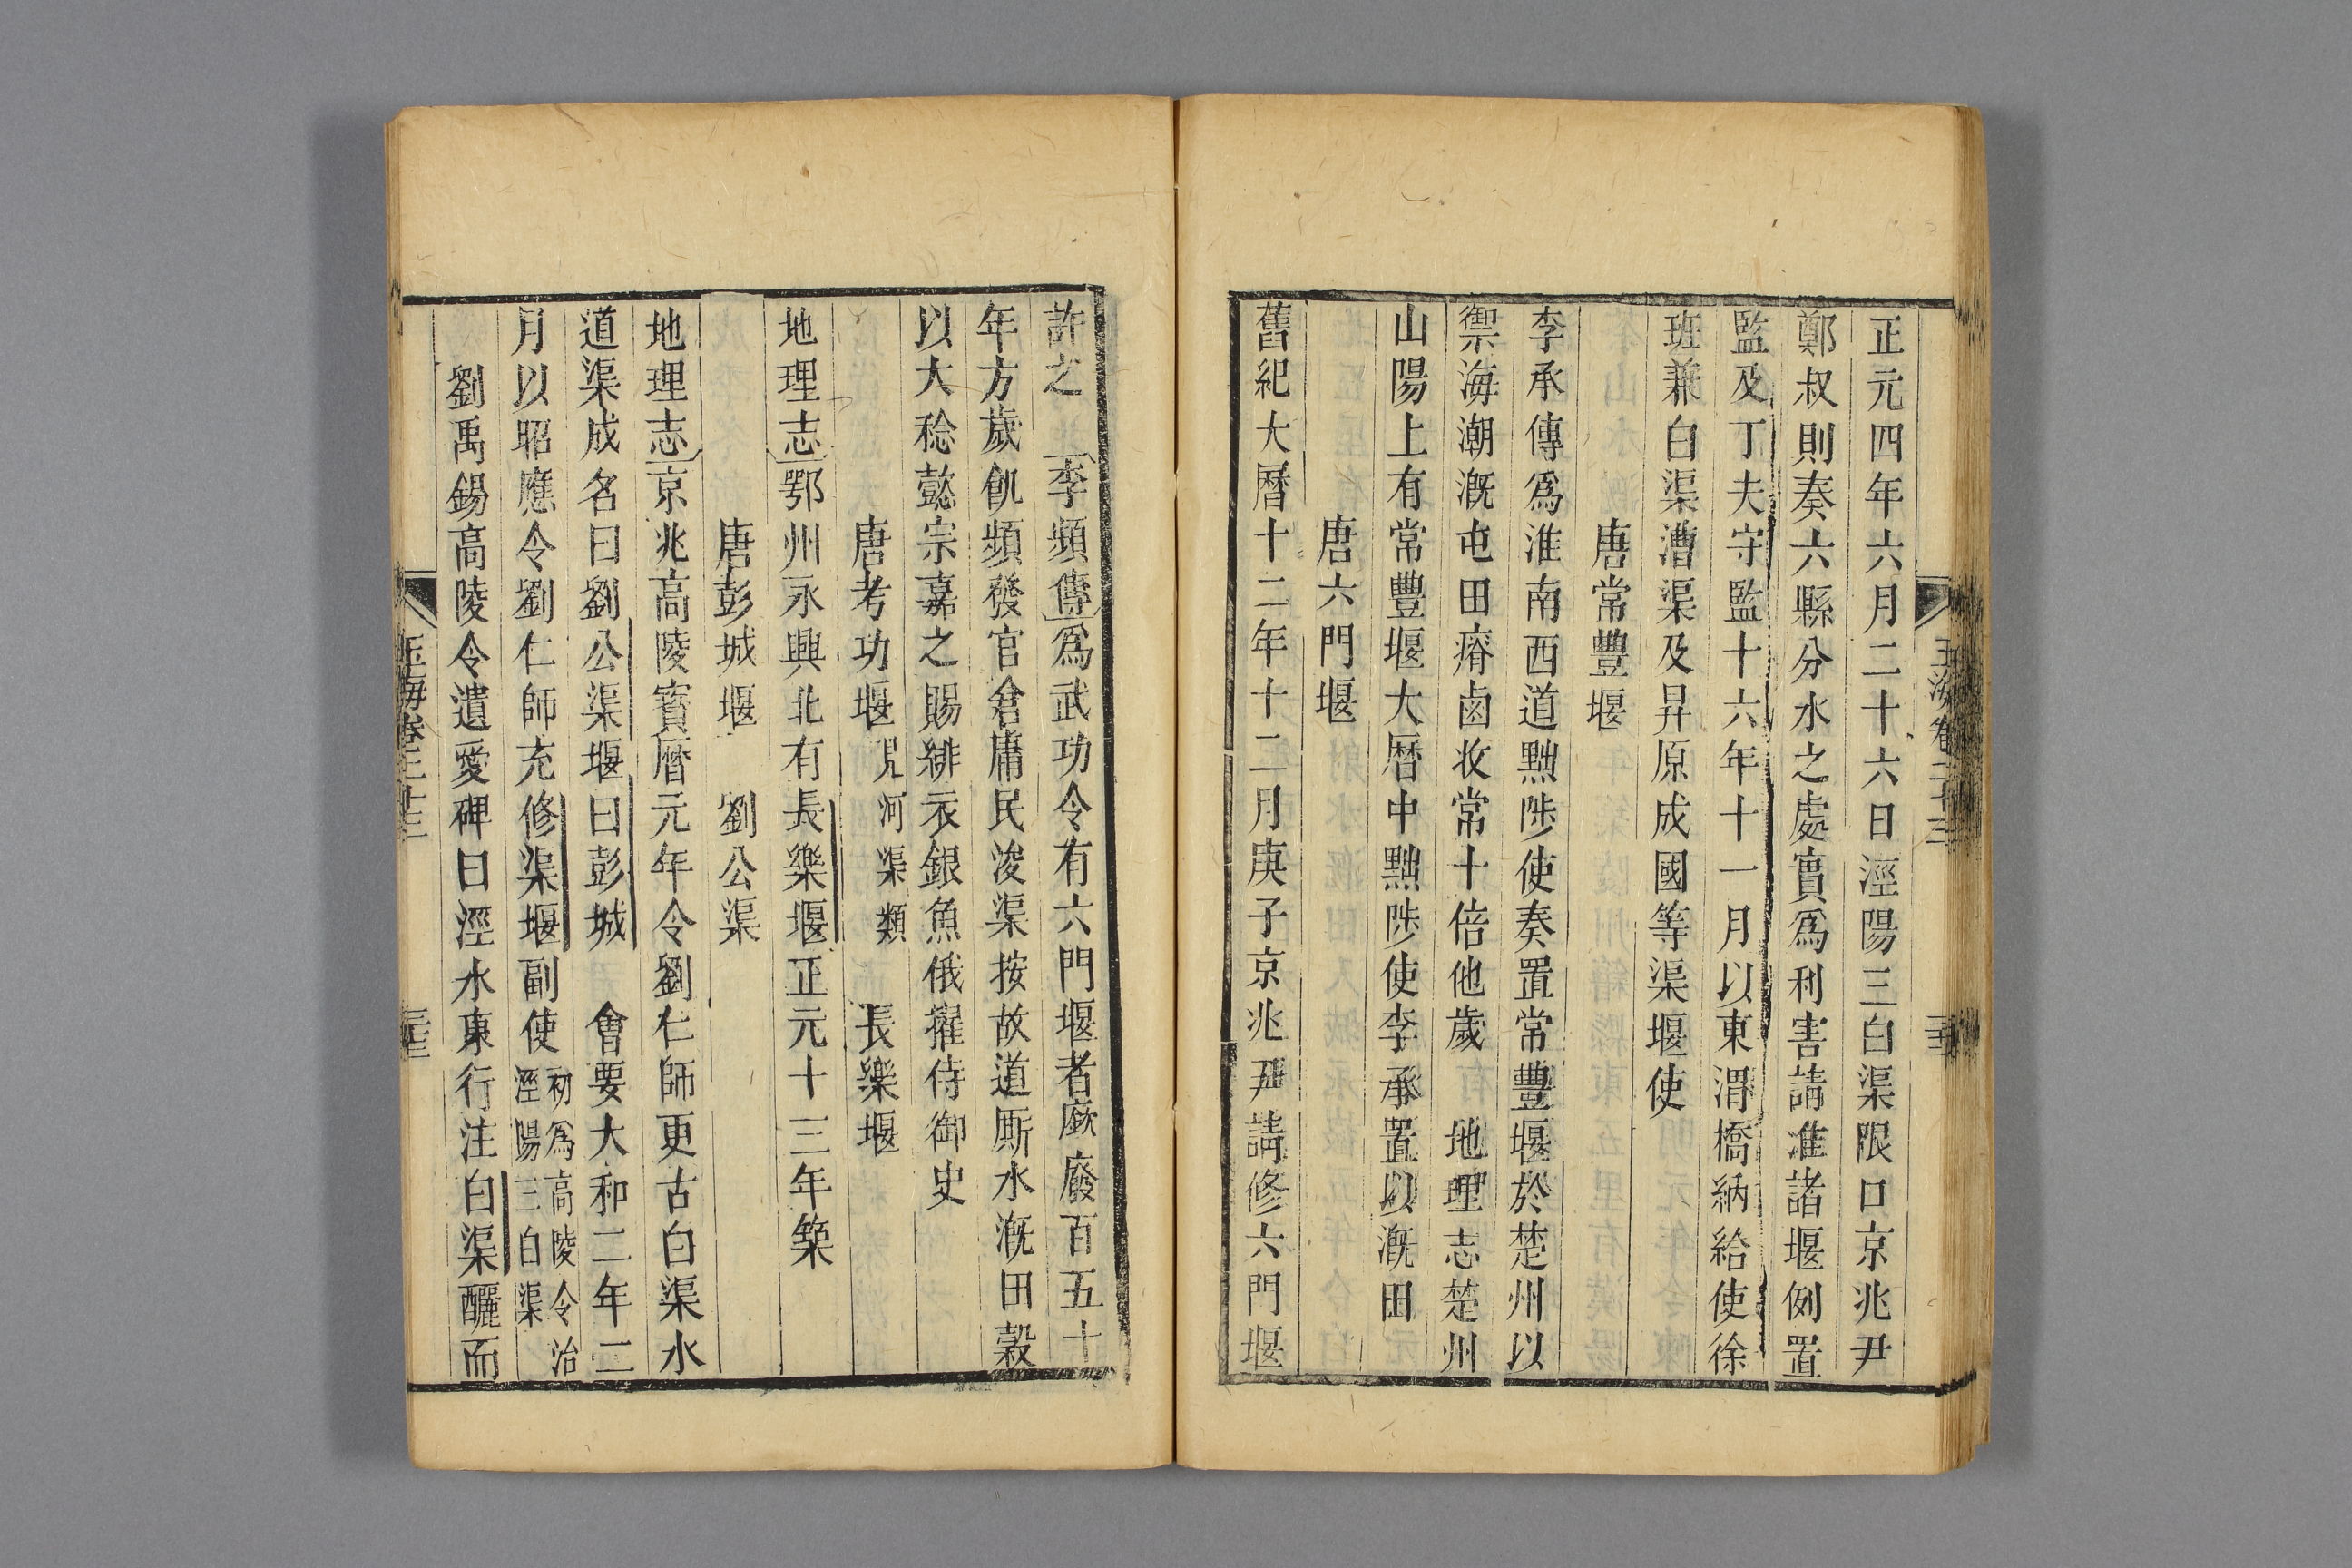 正元四年六月二十六日涇陽三白渠限口京兆尹
鄭叔則奏六縣分水之處實爲利害請准諸堰例置
監及丁夫守監十六年十一月以東渭橋納給使徐
班兼白渠漕渠及昇原成國等渠堰使
唐常豐堰
李承傳爲淮南西道黜陟使奏置常豐堰於楚州以
禦海潮溉屯田瘠鹵收常十倍他歲 地理志楚州
山陽上有常豐堰大曆中黜陟使李承置以溉田
唐六門堰
舊紀大曆十二年十二月庚子京兆尹請修六門堰
許之 李頻傳爲武功令有六門堰者廞廢百五十
年方歲飢頻發官倉庸民浚渠按故道厮水溉田穀
以大稔懿宗嘉之賜緋衣銀魚俄擢侍御史
唐考功堰 見河渠類 長樂堰
地理志鄂州永興北有長樂堰正元十三年築
唐彭城堰 劉公渠
地理志京兆高陵寶曆元年令劉仁師更古白渠水
道渠成名曰劉公渠堰曰彭城 會要大和二年二
月以昭應令劉仁師充修渠堰副使 初爲高陵令治涇陽三白渠
劉禹錫高陵令遺愛碑曰涇水東行注白渠釃而
玉海卷二十三